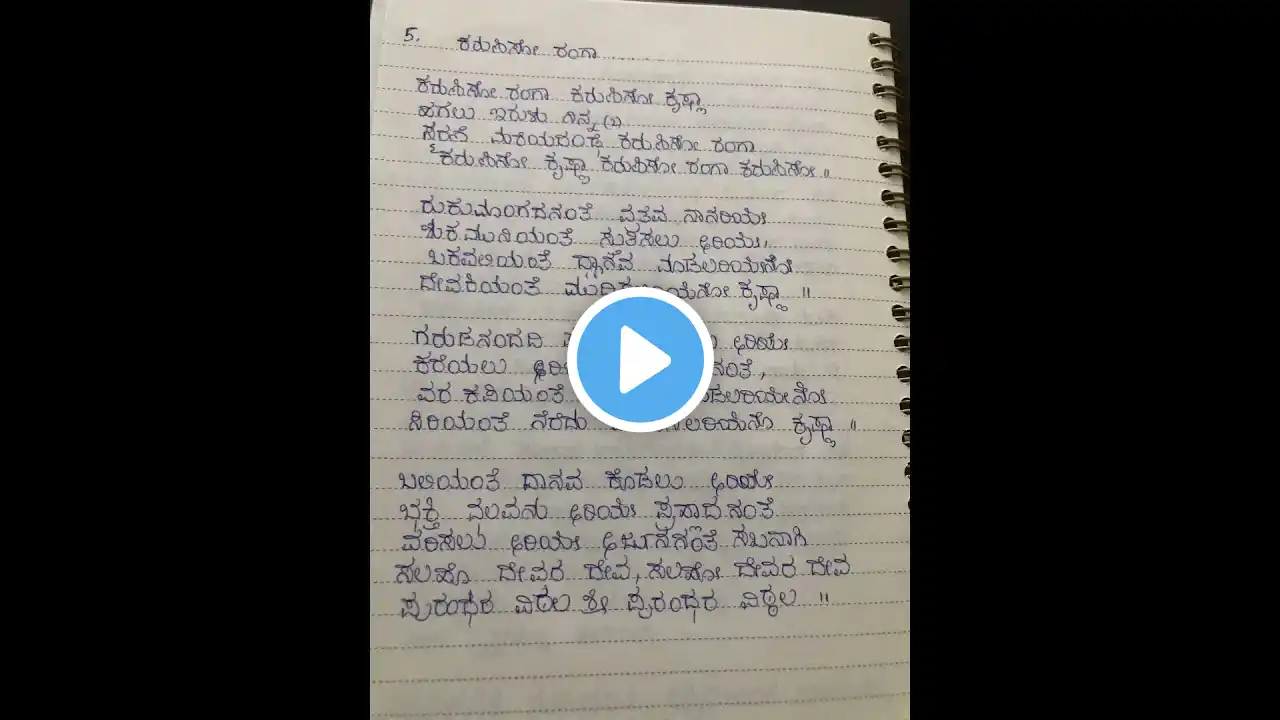 5. ಕರುಣಿಸೋ ರಂಗಾ
ಕರುಣಿಸೋ ರಂಗಾ ಕರುಣಿಸೋ ಕೃಷ್ಣಾ
ಹಗಲು ಇರುಳು ನಿನ್ನ (2)
ಸ್ಮರಣೆ ಮರೆಯದಂತೆ ಕರುಣಿಸೋ ರಂಗಾ
ಕರುಣಿಸೋ ಕೃಷ್ಣಾ ಕರುಣಿಸೋ ರಂಗಾ ಕರುಣಿಸೋ ॥
ರುಕುಮಾಂಗದನಂತೆ ವ್ರತವ ನಾನರಿಯೇ
ಶುಕಮುನಿಯಂತೆ ಸ್ತುತಿಸಲು ಅರಿಯೇ,
ಬಕವೈರಿಯಂತೆ ಧ್ಯಾನವ ಮಾಡಲರಿಯೇನೋ
ದೇವಕಿಯಂತೆ ಕೃಷ್ಣಾ ॥
ಗರುಡನಂದದಿ ಅರಿಯೇ
ಕರೆಯಲು
ವರ ಕಪಿಯಂತೆ
ಸಿರಿಯಂತೆ ನೆರೆದು ಕೃಷ್ಣಾ ॥
ಬಲಿಯಂತೆ ದಾನವ ಕೊಡಲು ಅರಿಯೇ
ಭಕ್ತಿ ಛಲವನು ಅರಿಯೇ ಪ್ರಹ್ಲಾದನಂತೆ
ವರಿಸಲು ಅರಿಯೇ ಅರ್ಜುನನಂತೆ ಸಖನಾಗಿ
ಸಲಹೊ ದೇವರ ದೇವ, ಸಲಹೋ ದೇವರ ದೇವ
ಪುರಂಧರ ವಿಠಲ ಶ್ರೀ ಪುರಂಧರ ವಿಠ್ಠಲ ॥